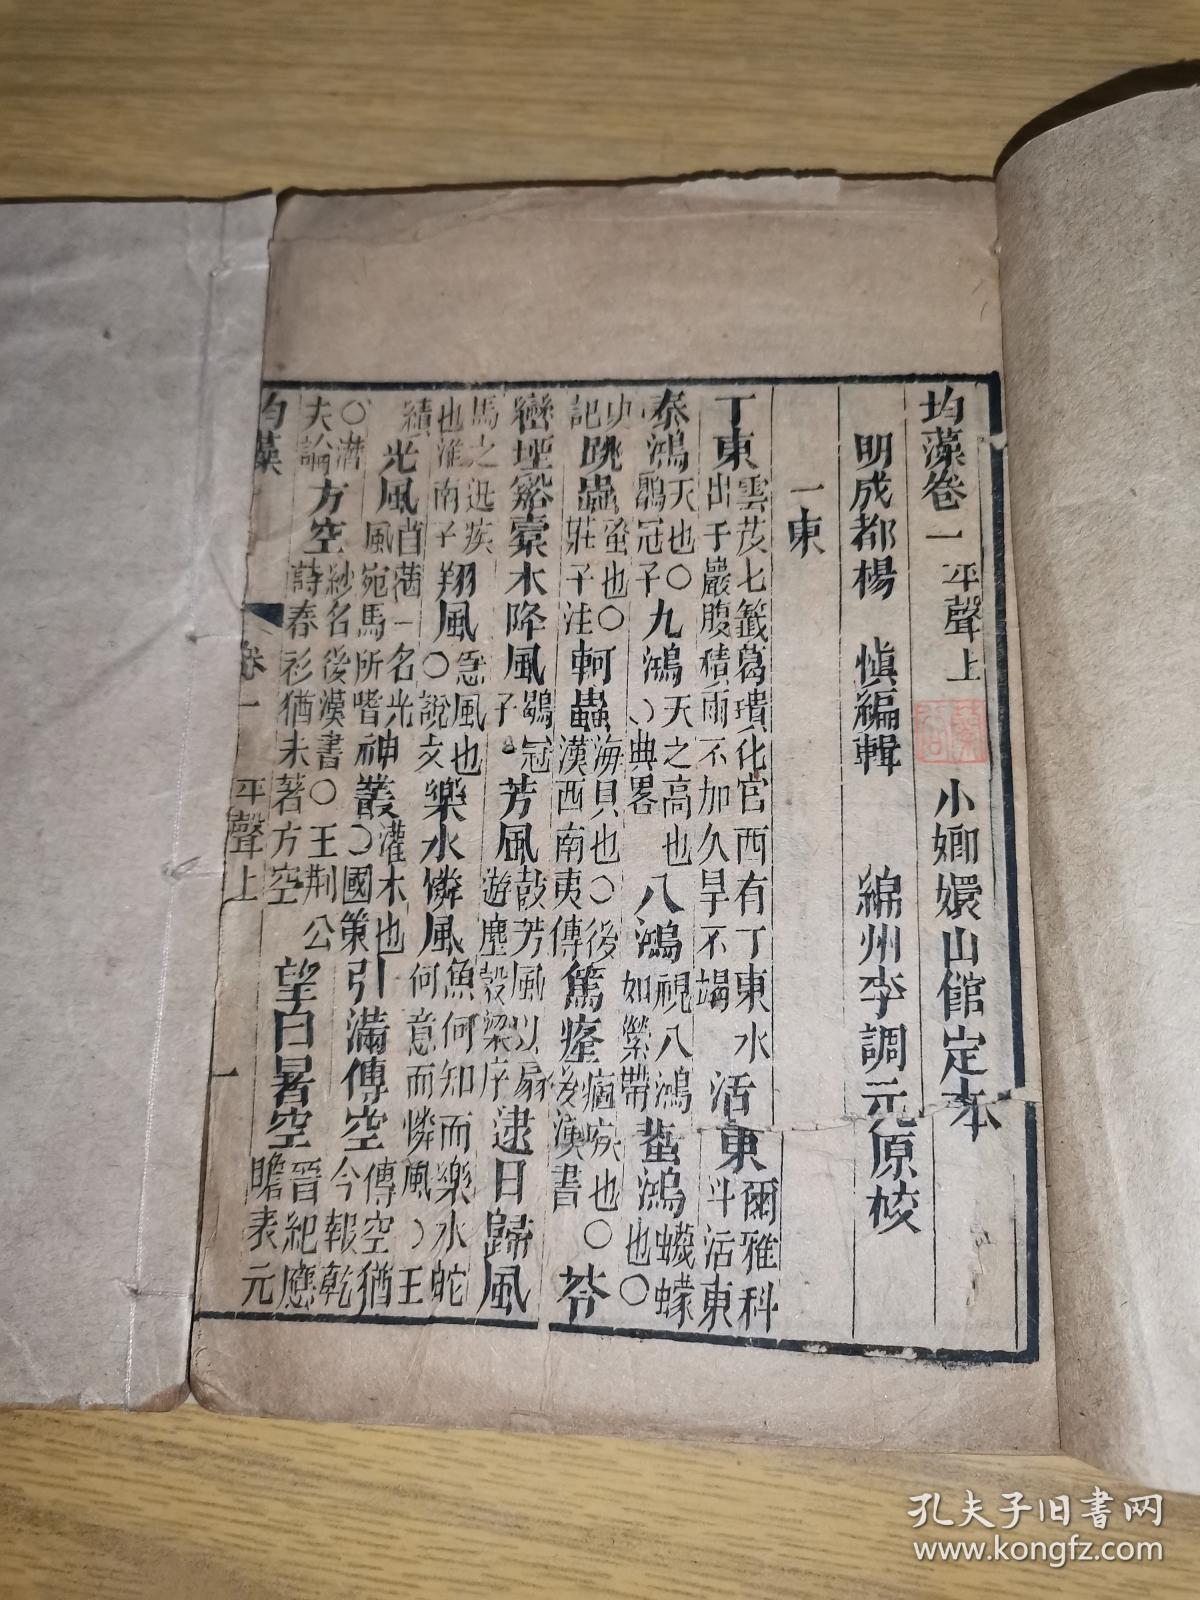 均藻卷一 平聲上 小嫏嬛山館定本
明成都楊 慎編輯 綿州李調元原校
一東
丁東雲茂七籤葛璝化官西有丁東水出于嚴腹積雨不加久旱不竭 活東爾雅科斗活東
泰鴻天也○鶡冠子 九鴻天之高也○典畧 八鴻視八鴻如縈帶 蜚鴻蠛蠓也○
記 跳蟲蛩也○莊子注 軻蟲海貝也○後漢西南夷傳 篤癃痼疾也○後漢書 苓
巒堙谿橐木降風鶡冠子 芳風鼓芳風以扇遊塵穀梁序 逮日歸風
馬之迅疾也淮南子 翔風急風也○說文 樂水憐風魚何知而樂水蛇何意而憐風○王
績 光風苜蓿一名光風宛馬所嗜 神叢灌木也○國策 引滿傳空傳空猶今報乾
○潛夫論 方空紗名後漢書○王荊公詩春衫猶未著方空 望白署空晉紀應瞻表元
均藻 卷一 平聲上 一
孔夫子旧书网
www.kongfz.com